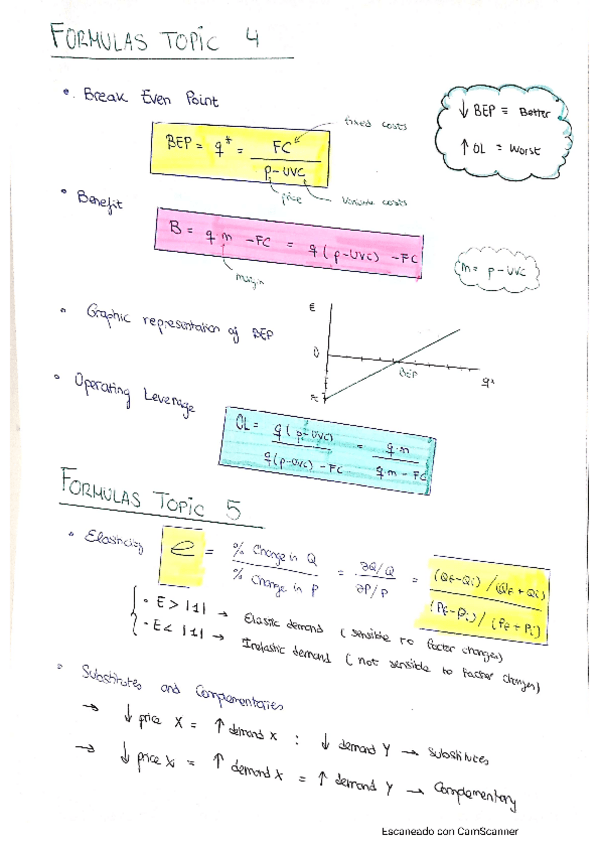 FORMULAS TOPIC 4
• Break Even Point
BEP = q* = FC / p-UVC
fixed costs
price
variable costs
↓ BEP = Better
↑ OL = Worst
• Benefit
B = q·m -FC = q(p-UVC) -FC
margin
m = p-UVC
• Graphic representation of BEP
€
0
BEP
q*
• Operating Leverage
OL = q(p-UVC) / q(p-UVC) - FC = q·m / q·m - FC
FORMULAS TOPIC 5
• Elasticity e = % Change in Q / % Change in P = ∂Q/Q / ∂P/P = (QF-Qi) / (QF+Qi) / (PF-Pi) / (PF+Pi)
• E > |1| → Elastic demand (sensible to factor changes)
• E < |1| → Inelastic demand (not sensible to factor changes)
• Substitutes and Complementaries
→ ↓ price X = ↑ demand X : ↓ demand Y → Substitutes
→ ↓ price X = ↑ demand X = ↑ demand Y → Complementary
Escaneado con CamScanner